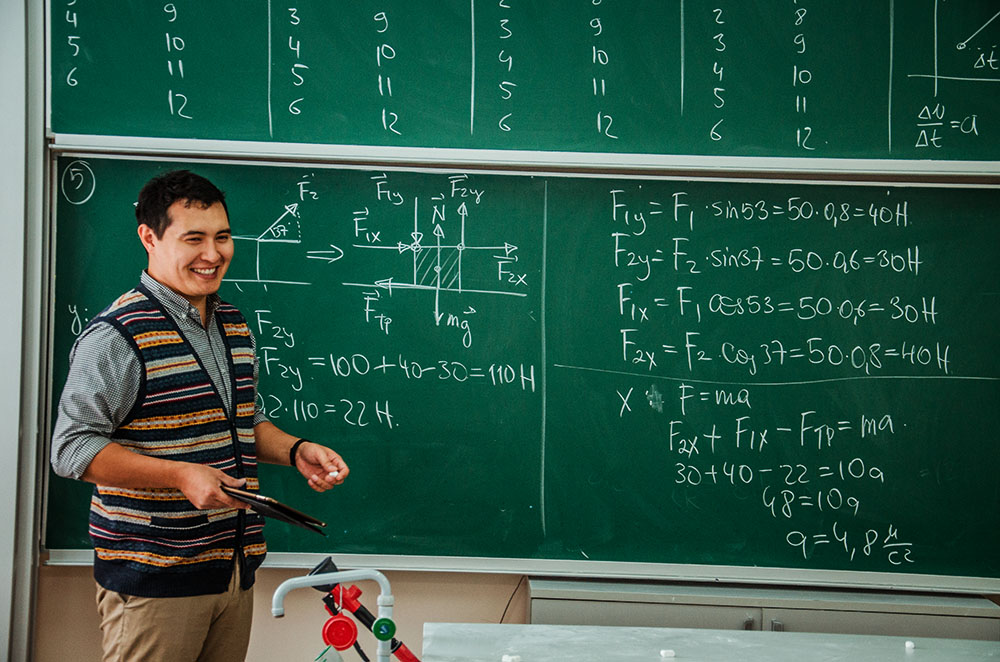 4 9 3 9 3 9 2 8
5 10 4 10 4 10 3 9
6 11 5 11 5 11 4 10
12 6 12 6 12 5 11
6 12
Δt
Δv/Δt = a
5
F⃗₂
37°
⇒
F⃗₁y F⃗₂y
N⃗
F⃗₁x
F⃗₂x
F⃗тр
mg⃗
y:
F₂y
F₂y = 100 + 40 - 30 = 110 Н
2 · 110 = 22 Н.
F₁y = F₁ · sin53 = 50 · 0,8 = 40 Н
F₂y = F₂ · sin37 = 50 · 0,6 = 30 Н
F₁x = F₁ cos53 = 50 · 0,6 = 30 Н
F₂x = F₂ · cos37 = 50 · 0,8 = 40 Н
x : F = ma
F₂x + F₁x - Fтр = ma.
30 + 40 - 22 = 10a
48 = 10a
a = 4,8 м/с²